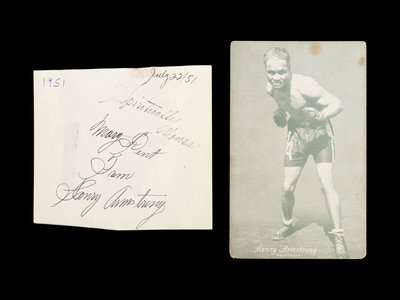 1951
July 22/51
Spiritually Yours
Mary
From
Henry Armstrong
Henry Armstrong